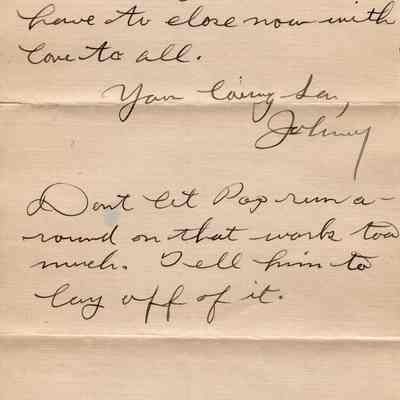 have to close now with
love to all.
Your loving Son,
Johnny
Dont let Pop run a-
round on that work too
much. Tell him to
lay off of it.